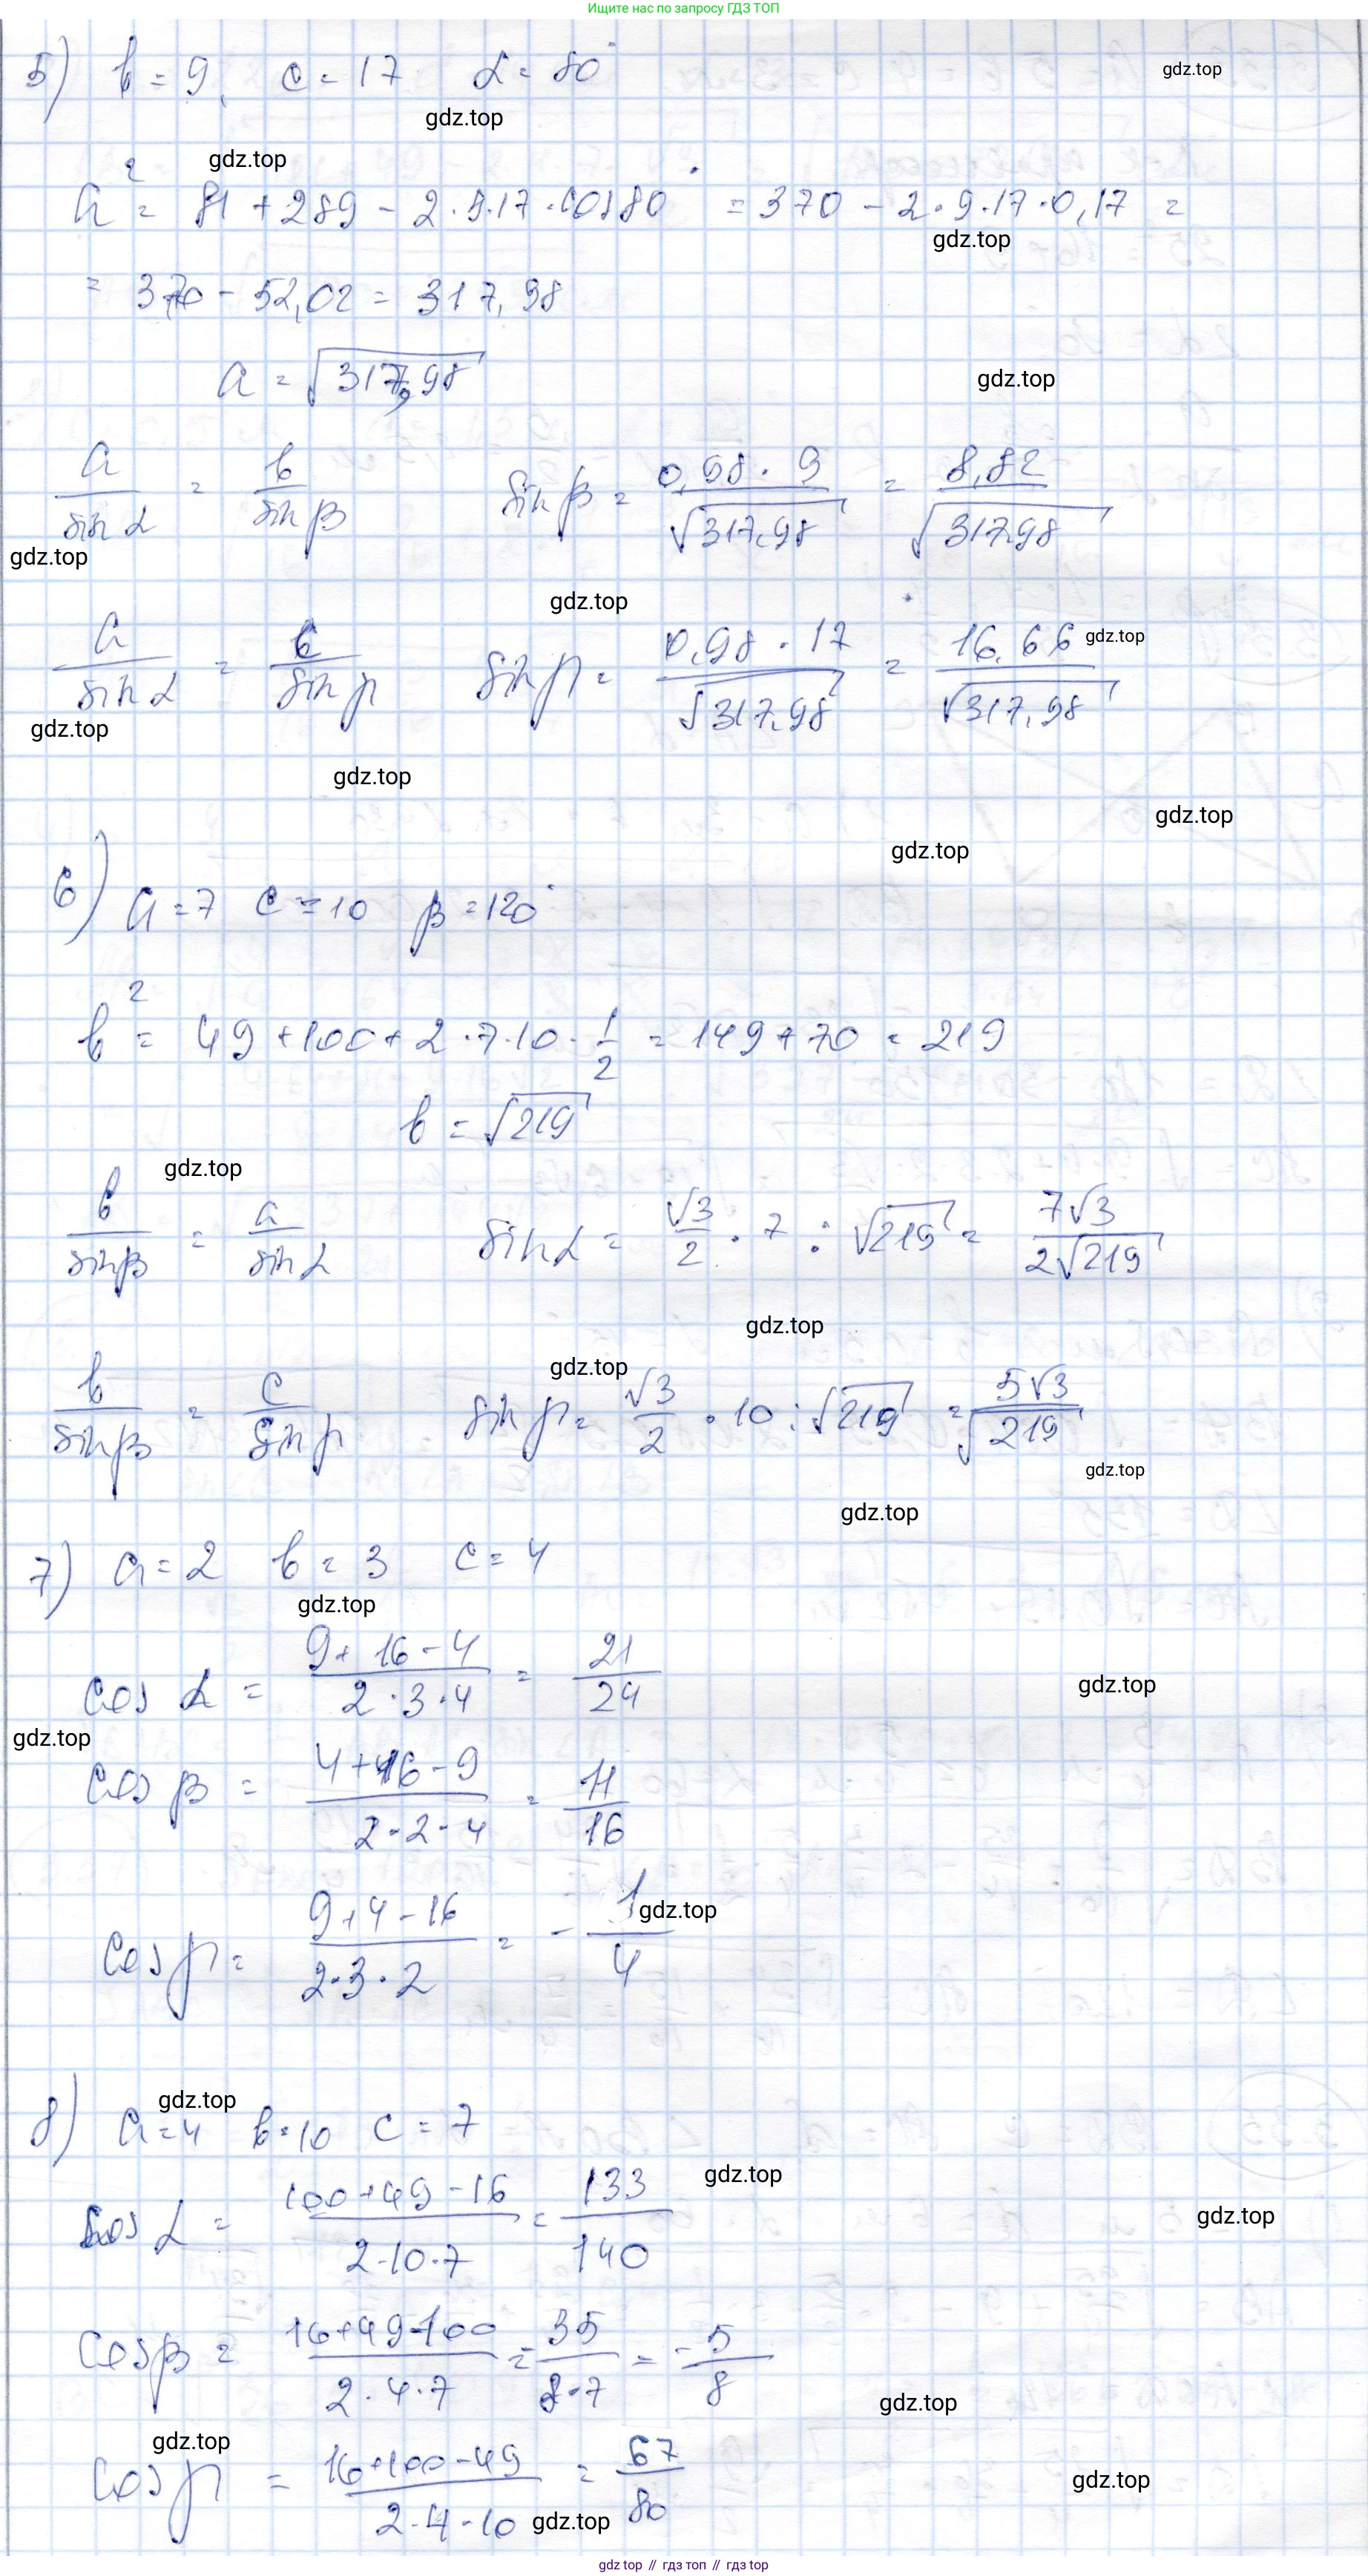 Ищите нас по запросу ГДЗ ТОП
5) b = 9, c = 17 α = 80°
gdz.top
gdz.top
gdz.top
a² = 81 + 289 - 2·9·17·cos80° = 370 - 2·9·17·0,17 =
gdz.top
= 370 - 52,02 = 317,98
a = √317,98
gdz.top
a/sin α = b/sin β sin β = 0,98·9/√317,98 = 8,82/√317,98
gdz.top
gdz.top
a/sin α = c/sin γ sin γ = 0,98·17/√317,98 = 16,66/√317,98
gdz.top
gdz.top
gdz.top
gdz.top
gdz.top
6) a = 7 c = 10 β = 120°
b² = 49 + 100 + 2·7·10·1/2 = 149 + 70 = 219
b = √219
gdz.top
b/sin β = a/sin α sin α = √3/2 · 7 : √219 = 7√3/2√219
gdz.top
gdz.top
b/sin β = c/sin γ sin γ = √3/2 · 10 : √219 = 5√3/√219
gdz.top
gdz.top
7) a = 2 b = 3 c = 4
gdz.top
cos α = 9 + 16 - 4/2·3·4 = 21/24
gdz.top
gdz.top
cos β = 4 + 16 - 9/2·2·4 = 11/16
cos γ = 9 + 4 - 16/2·3·2 = - 1/4
gdz.top
gdz.top
8) a = 4 b = 10 c = 7
gdz.top
cos α = 100 + 49 - 16/2·10·7 = 133/140
gdz.top
cos β = 16 + 49 - 100/2·4·7 = 35/8·7 = -5/8
gdz.top
gdz.top
cos γ = 16 + 100 - 49/2·4·10 = 67/80
gdz.top
gdz.top
gdz top // гдз топ // гдз top